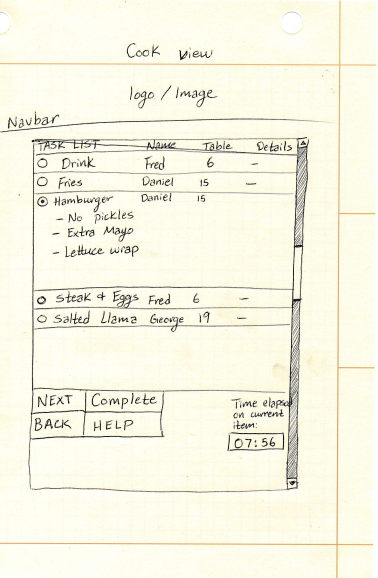 Cook view
logo / Image
Navbar
TASK LIST Name Table Details
Drink Fred 6 -
Fries Daniel 15 -
Hamburger Daniel 15
- No pickles
- Extra Mayo
- Lettuce wrap
Steak & Eggs Fred 6 -
Salted Llama George 19 -
NEXT Complete
BACK HELP
Time elapsed
on current
item:
07:56